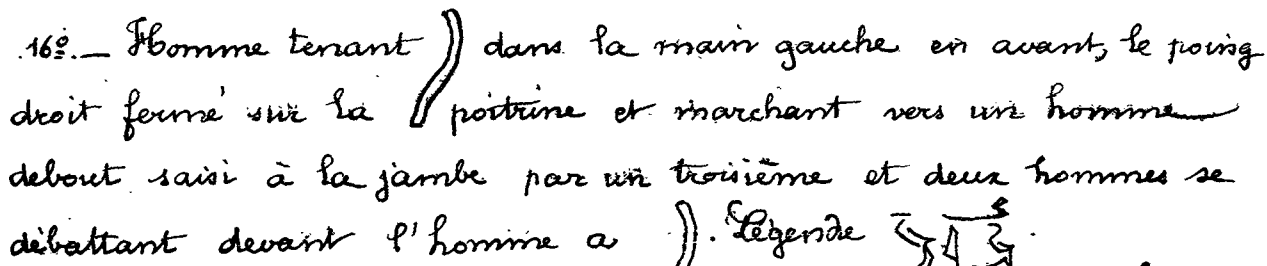 16º.— Homme tenant dans la main gauche en avant, le poing
droit fermé sur la poitrine et marchant vers un homme
debout saisi à la jambe par un troisième et deux hommes se
débattant devant l'homme a . Légende .